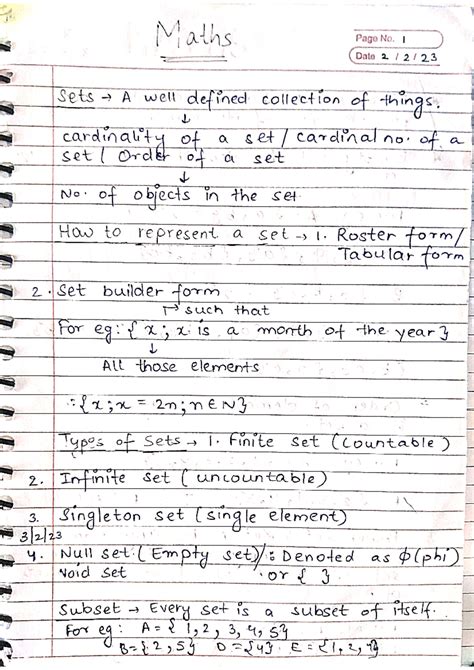 Maths
Page No. 1
Date 2 / 2 / 23
Sets → A well defined collection of things.
↓
cardinality of a set / cardinal no. of a
set / Order of a set
↓
No. of objects in the set
How to represent a set → 1. Roster form/
Tabular form
2. Set builder form
↱ such that
For eg: { x ; x is a month of the year }
↓
All those elements
: { x ; x = 2n ; n ∈ N }
Types of Sets → 1. Finite set (countable)
2. Infinite set (uncountable)
3. Singleton set (single element)
3/2/23
4. Null set : (Empty set) / : Denoted as ϕ (phi)
Void set or { }
Subset → Every set is a subset of itself.
For eg : A = { 1, 2, 3, 4, 5 }
B = { 2, 5 } D = { 4 } E = { 1, 2, }